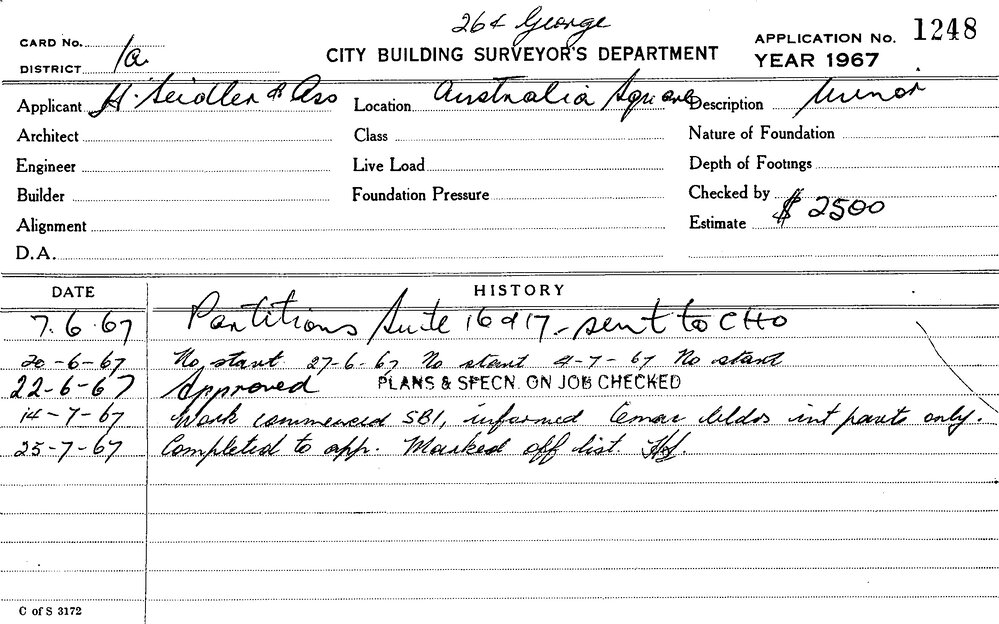 264 George
CARD No.
CITY BUILDING SURVEYOR'S DEPARTMENT
APPLICATION No. 1248
DISTRICT 1a
YEAR 1967
Applicant H. Seidler & Ass Location Australia Square Description Minor
Architect Class Nature of Foundation
Engineer Live Load Depth of Footings
Builder Foundation Pressure Checked by
Alignment Estimate $ 2500
D.A.
DATE HISTORY
7.6.67 Partitions Suite 16 & 17 - sent to CHO
20-6-67 No start 27-6-67 No start 4-7-67 No start
22-6-67 Approved PLANS & SPECN. ON JOB CHECKED
14-7-67 Work commenced SBI, informed bldrs int parts only.
25-7-67 Completed to app. Marked off list.
C of S 3172